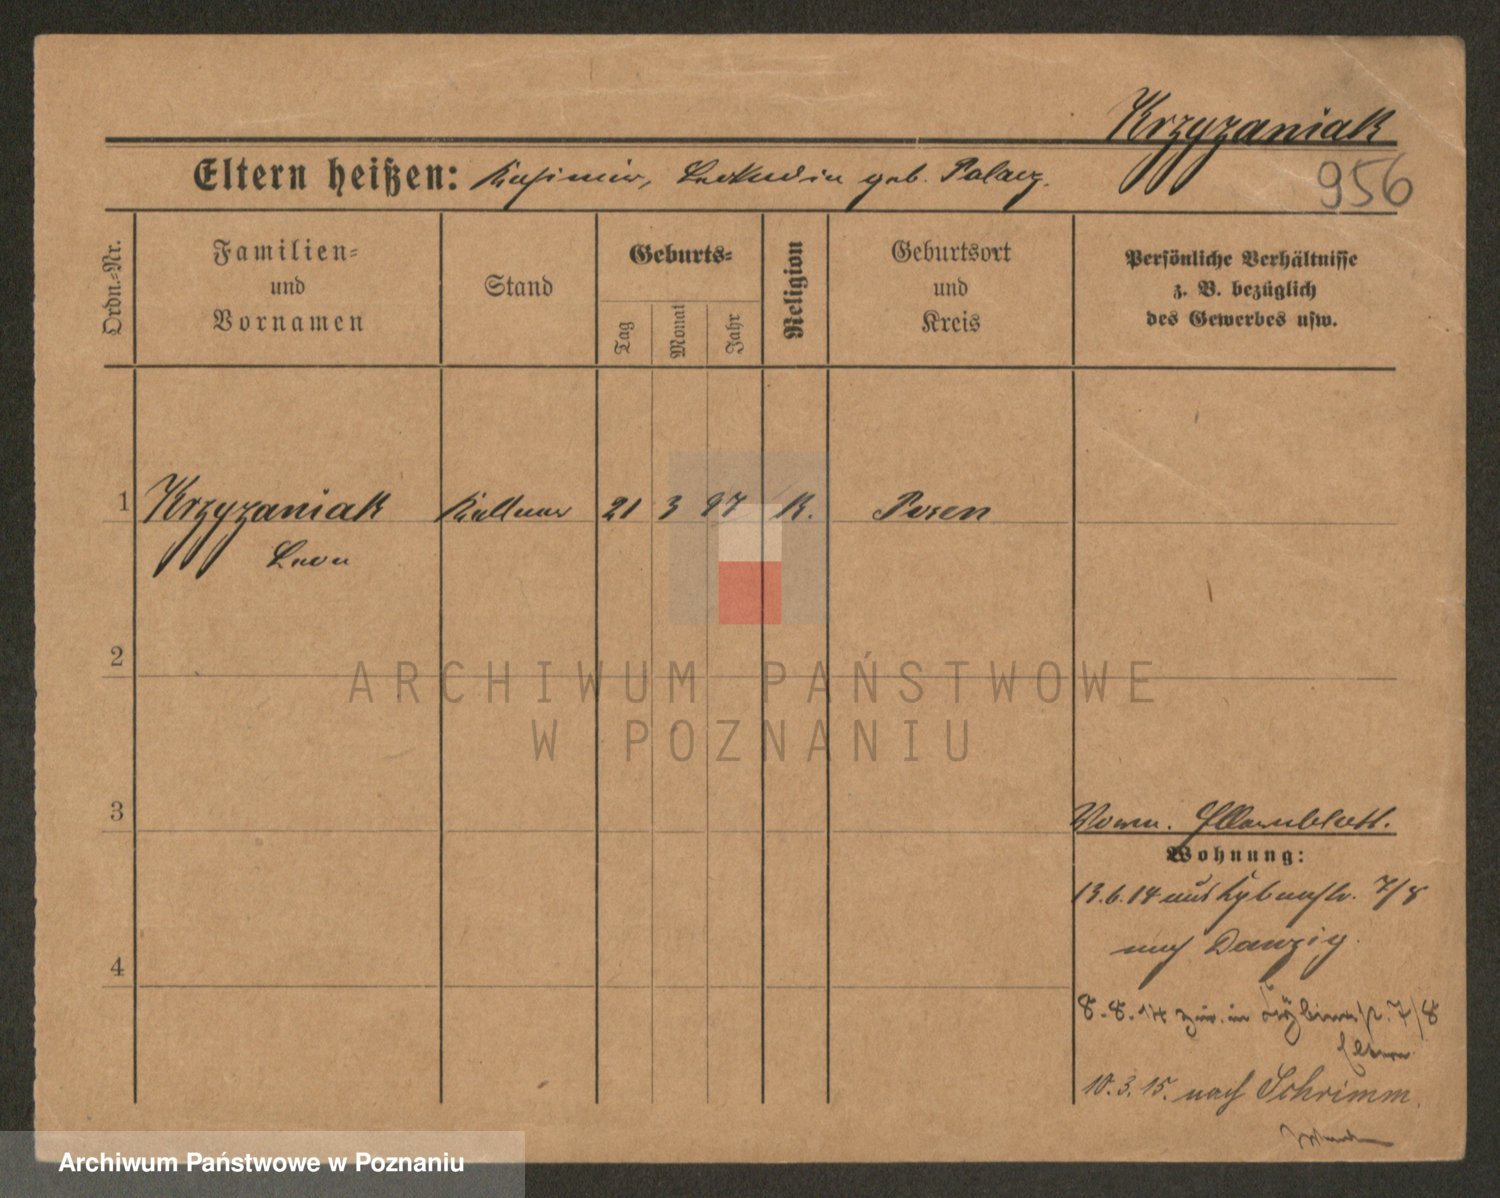 Krzyzaniak
956
Eltern heißen: Kasimir, Leokadia geb. Palacz.
Ordn.=Nr.
Familien=
und
Vornamen
Stand
Geburts=
Tag
Monat
Jahr
Religion
Geburtsort
und
Kreis
Persönliche Verhältnisse
z. B. bezüglich
des Gewerbes usw.
1 Krzyzaniak Kellner 21 3 97 K. Posen
Leon
2
3
Vorm. Elternblatt.
Wohnung:
13.6.14 aus 7/8
nach Danzig.
4
8.8.14 zur. in 7/8
Eltern
10.3.15. nach Schrimm.
ARCHIWUM PAŃSTWOWE
W POZNANIU
Archiwum Państwowe w Poznaniu